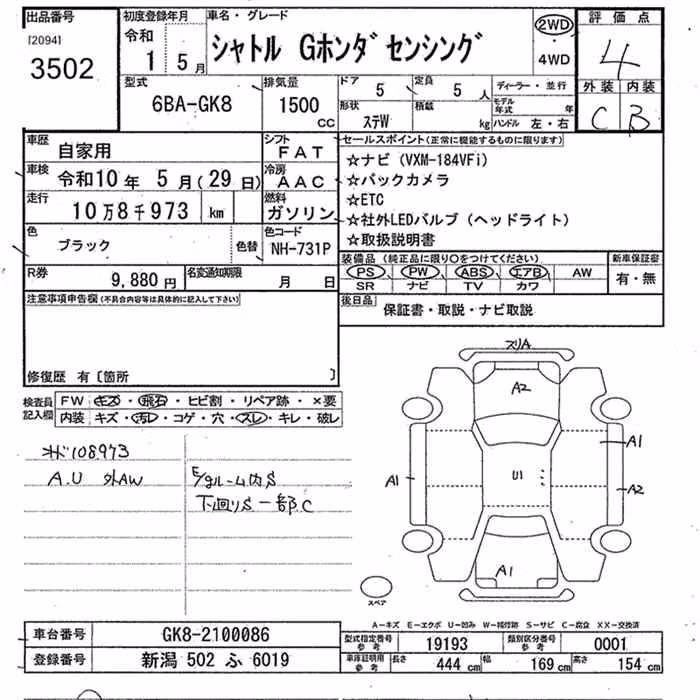 出品番号
[2094]
3502
初度登録年月
令和
1 5月
車名・グレード
シャトル Gホンダセンシング
2WD
・
4WD
評価点
4
外装 内装
C B
型式
6BA-GK8
排気量
1500
CC
ドア
5
定員
5 人
形状
ステW
積載
kg
ディーラー・並行
モデル年式 年
ハンドル 左・右
車歴
自家用
シフト
FAT
車検
令和10年 5月(29日)
冷房
AAC
走行
10万8千973 km
燃料
ガソリン
色
ブラック
色替
色コード
NH-731P
R券
9,880円
名変通知期限
月 日
セールスポイント(正常に機能するものに限ります)
☆ナビ(VXM-184VFi)
☆バックカメラ
☆ETC
☆社外LEDバルブ(ヘッドライト)
☆取扱説明書
装備品(純正品に限り○をつけてください)
PS PW ABS エアB AW
SR ナビ TV カワ
新車保証書
有・無
後日品
保証書・取説・ナビ取説
注意事項申告欄(不具合内容等は具体的に記入して下さい)
修復歴 有〔箇所 〕
検査員
記入欄
FW キズ・飛石・ヒビ割・リペア跡・×要
内装 キズ・汚レ・コゲ・穴・スレ・キレ・破レ
108973
A.U 外AW
E/gルーム内S
下回りS 一部C
スリA
A2
A1
A1
U1
A2
A1
スペア
A−キズ E−エクボ U−凹み W−補修跡 S−サビ C−腐食 XX−交換済
車台番号
GK8-2100086
登録番号
新潟 502 ふ 6019
型式指定番号
参考
19193
類別区分番号
参考
0001
車庫証明用
参考
長さ
444 cm
幅
169 cm
高さ
154 cm